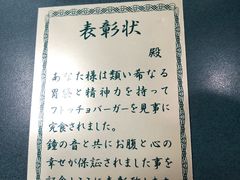 表彰状
殿
あなた様は類い希なる
胃袋と精神力を持って
フトッチョバーガーを見事に
完食されました。
鐘の音と共にお腹と心の
幸せが保証されました事を